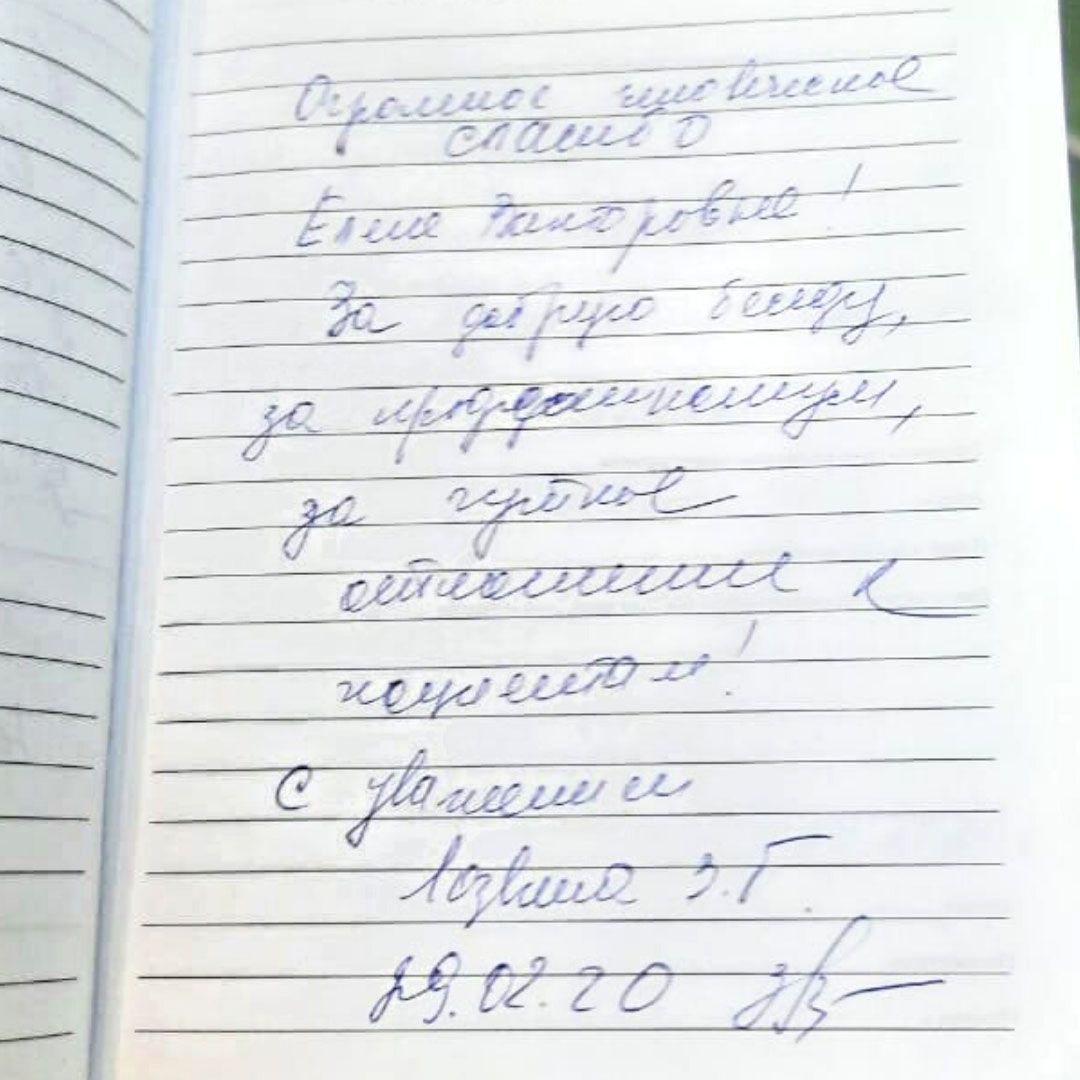 Огромное человеческое
спасибо
Елене Викторовне!
За добрую беседу,
за
за чуткое
отношение к
пациентам!
С уважением
З.Г.
29.02.20